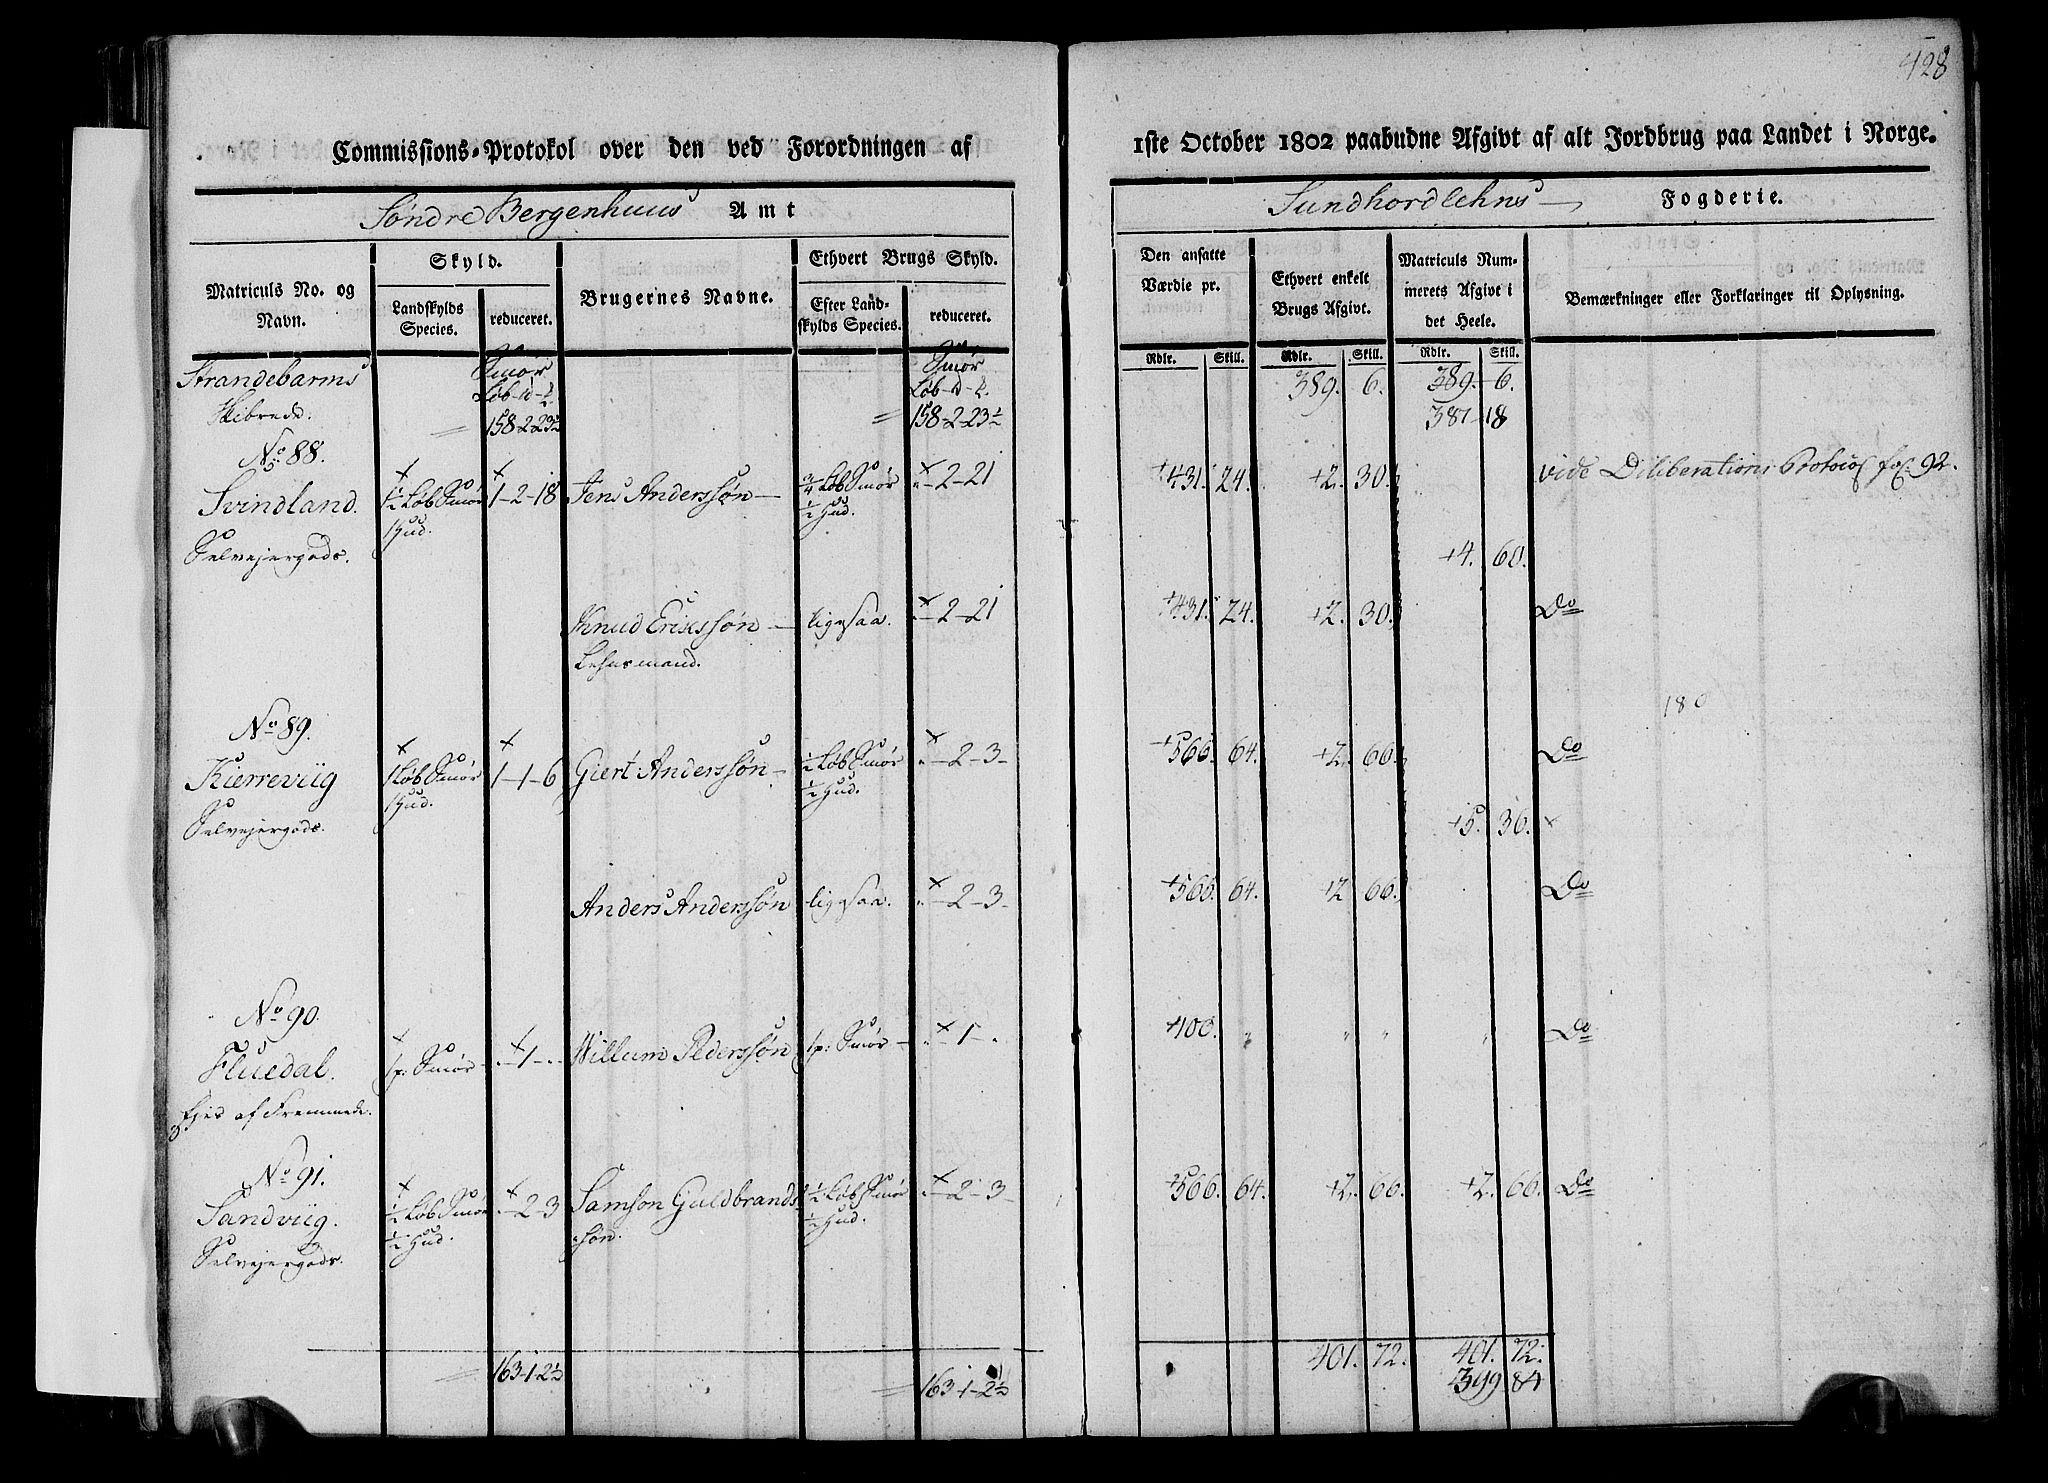 428
Commissions-Protokol over den ved Forordningen af
1ste October 1802 paabudne Afgivt af alt Jordbrug paa Landet i Norge.
Søndre Bergenhuus Amt
Sundhordlehns Fogderie.
Matriculs No. og Navn.
Skyld.
Landskylds Species.
reduceret.
Brugernes Navne.
Ethvert Brugs Skyld.
Efter Landskylds Species.
reduceret.
Den ansatte Værdie pr.
Ethvert enkelt Brugs Afgivt.
Matriculs Nummerets Afgivt i det Heele.
Bemærkninger eller Forklaringer til Oplysning.
Rdlr. Skill. Rdlr. Skill. Rdlr. Skill.
Strandebarms Skibrede.
Smør Løb
158-2-23½
Smør Løb
158-2-23½
389. 6. 389. 6.
387 18
No 88.
Svindland. 1½ Løb Smør 1-2-18 Jens Anderssøn ¾ Løb Smør "-2-21 431. 24. 2. 30. vide Deliberations Protocol fol: 92.
1 Hud. ½ Hud.
Selvejergods. 4. 60.
Knud Erikssøn ligesaa. "-2-21 431. 24. 2. 30. Do
Lehnsmand.
180
No 89.
Kierreviig 1 Løb Smør 1-1-6 Giert Anderssøn ½ Løb Smør "-2-3 566. 64. 2. 66. Do
1 Hud. ½ Hud.
Selvejergods. 5. 36.
Anders Anderssøn ligesaa. "-2-3 566. 64. 2 66. Do
No 90.
Fluedal. 1 p: Smør "-1-" Willum Pederssøn 1 p: Smør "-1-" 100. " " " " Do
Ejes af Fremmede.
No 91.
Sandviig. ½ Løb Smør "-2-3 Samson Guldbrands ½ Løb Smør "-2-3 566. 64. 2. 66. 2. 66. Do
½ Hud. søn. ½ Hud.
Selvejergods.
163-1-2½ 163-1-2½ 401. 72. 401. 72.
399 84